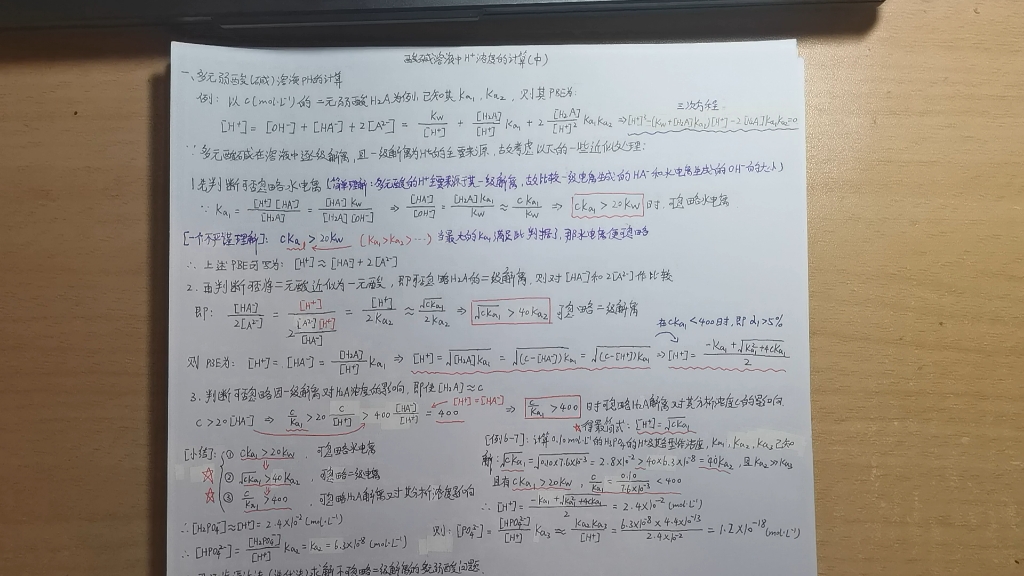 酸碱溶液中H⁺浓度的计算(中)
一、多元弱酸(碱)溶液PH的计算
例: 以 c(mol·L⁻¹)的二元弱酸H₂A为例,已知其 Ka₁, Ka₂, 则其PBE为:
三次方程
[H⁺] = [OH⁻] + [HA⁻] + 2[A²⁻] = Kw/[H⁺] + [H₂A]/[H⁺] Ka₁ + 2 [H₂A]/[H⁺]² Ka₁Ka₂ ⇒ [H⁺]³-(Kw+[H₂A]Ka₁)[H⁺]-2[H₂A]Ka₁Ka₂=0
∵ 多元酸(碱)在溶液中逐级解离, 且一级解离为H⁺的主要来源, 故考虑以下的一些近似处理:
1.先判断可否忽略水电离 (简单理解: 多元酸的H⁺主要来源于其一级解离, 故比较一级电离生成的HA⁻和水电离生成的OH⁻的大小)
∵ Ka₁ = [H⁺][HA⁻]/[H₂A] = [HA⁻]Kw/[H₂A][OH⁻] ⇒ [HA⁻]/[OH⁻] = [H₂A]Ka₁/Kw ≈ cKa₁/Kw ⇒ cKa₁ > 20Kw 时, 可忽略水电离
[一个不严谨理解]: cKa₁ > 20Kw (Ka₁>Ka₂>…) 当最大的Ka₁满足此判据了, 那水电离便可忽略
∴ 上述PBE可写为: [H⁺] ≈ [HA⁻] + 2[A²⁻]
2. 再判断可否将二元酸近似为一元酸, 即可否忽略H₂A的二级解离, 则对[HA⁻]和2[A²⁻]作比较
即: [HA⁻]/2[A²⁻] = [H⁺]/(2 [A²⁻][H⁺]/[HA⁻]) = [H⁺]/2Ka₂ ≈ √cKa₁/2Ka₂ ⇒ √cKa₁ > 40Ka₂ 可忽略二级解离
在cKa₁<400时, 即 α₁>5%
则 PBE为: [H⁺] = [HA⁻] = [H₂A]/[H⁺] Ka₁ ⇒ [H⁺] = √[H₂A]Ka₁ = √(c-[HA⁻])Ka₁ = √(c-[H⁺])Ka₁ ⇒ [H⁺] = (-Ka₁+√Ka₁²+4cKa₁)/2
3. 判断可否忽略因一级解离对H₂A浓度的影响, 即使[H₂A] ≈ c
[H⁺]=[HA⁻]
c > 20[HA⁻] ⇒ c/Ka₁ > 20 c/[H⁺] > 400 [HA⁻]/[H⁺] = 400 ⇒ c/Ka₁ > 400 时可忽略H₂A解离对其分析浓度c的影响
☆得最简式: [H⁺] = √cKa₁
[小结]: ① cKa₁ > 20Kw, 可忽略水电离
☆ ② √cKa₁ > 40Ka₂, 可忽略二级电离
☆ ③ c/Ka₁ > 400, 可忽略H₂A解离对其分析浓度影响
[例6-7]: 计算0.10mol·L⁻¹的H₃PO₄的H⁺及各型体浓度, Ka₁, Ka₂, Ka₃已知
解: √cKa₁ = √0.10×7.6×10⁻³ = 2.8×10⁻² > 40×6.3×10⁻⁸ = 40Ka₂, 且 Ka₂ ≫ Ka₃
且有 cKa₁ > 20Kw, c/Ka₁ = 0.10/7.6×10⁻³ < 400
∴ [H⁺] = (-Ka₁+√Ka₁²+4cKa₁)/2 = 2.4×10⁻² (mol·L⁻¹)
∴ [H₂PO₄⁻] ≈ [H⁺] = 2.4×10⁻² (mol·L⁻¹)
∴ [HPO₄²⁻] = [H₂PO₄⁻]/[H⁺] Ka₂ = Ka₂ = 6.3×10⁻⁸ (mol·L⁻¹)
则: [PO₄³⁻] = [HPO₄²⁻]/[H⁺] Ka₃ ≈ Ka₂Ka₃/[H⁺] = 6.3×10⁻⁸×4.4×10⁻¹³/2.4×10⁻² = 1.2×10⁻¹⁸ (mol·L⁻¹)
求解不可忽略二级解离的多元弱酸问题.